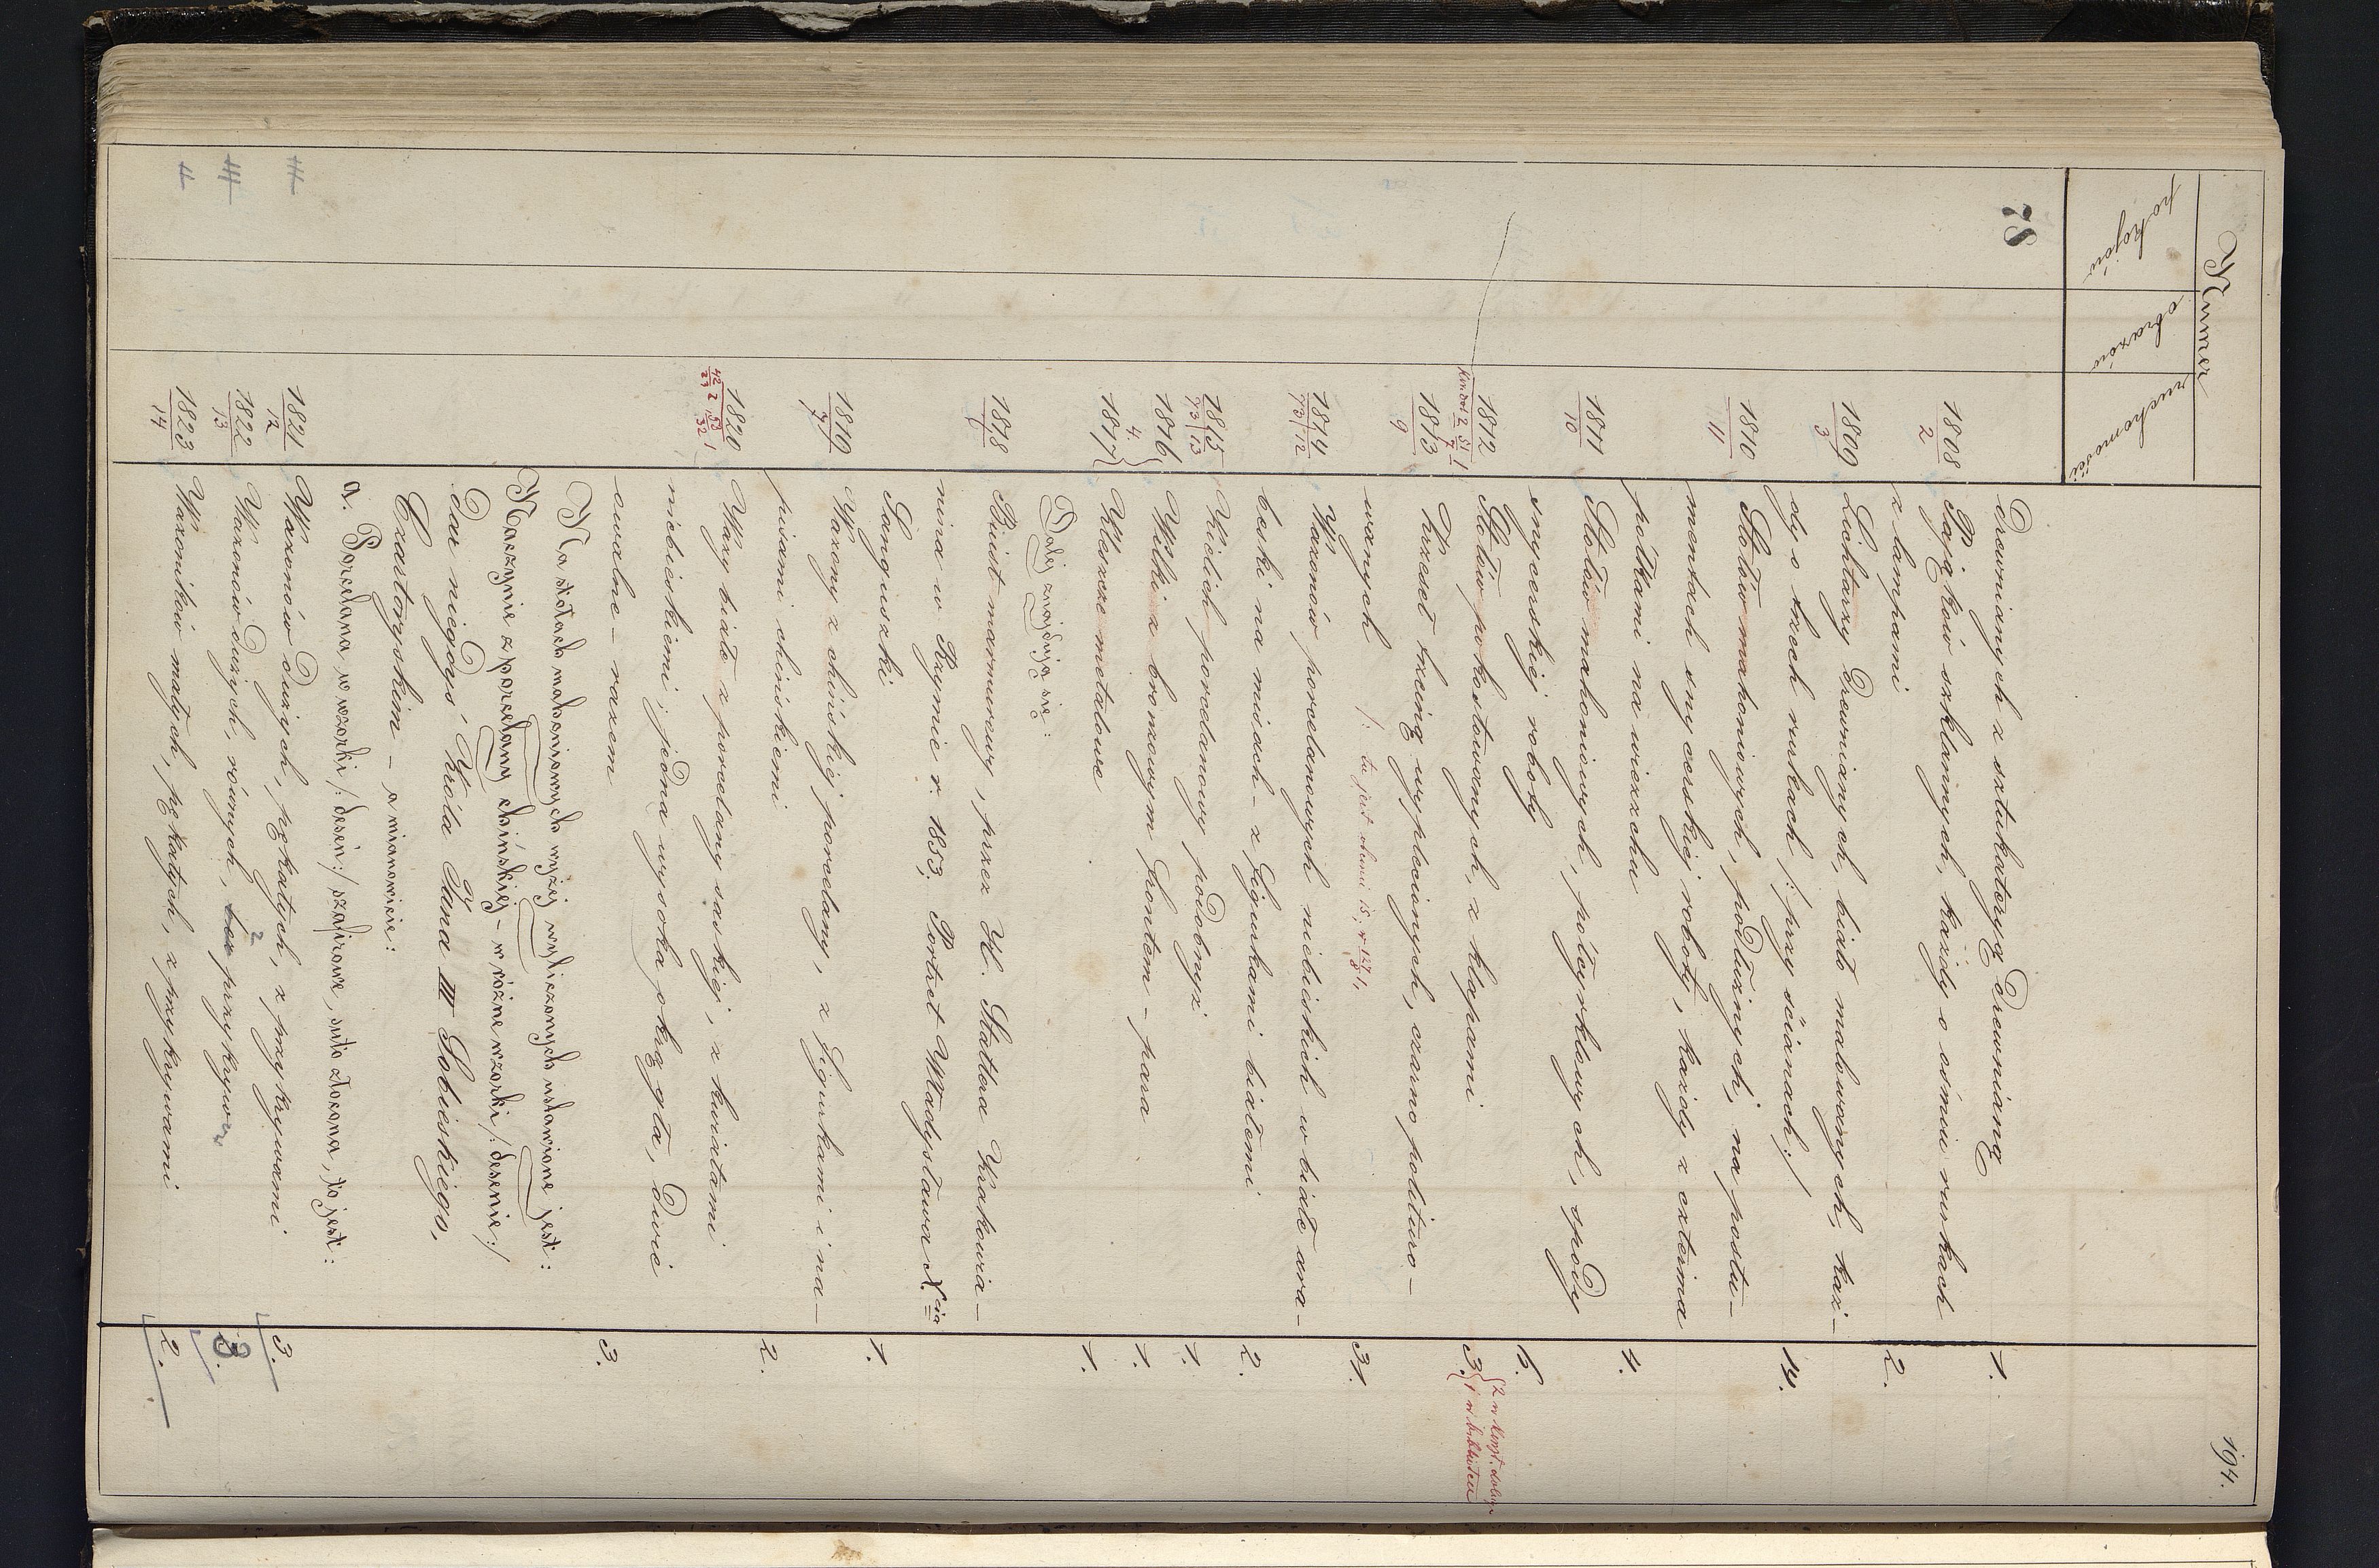 194.
Numer
pokojów obrazów ruchomości
78 drewnianych z sztukateryą drewnianą 1.
1808 Pająków szklannych, każdy o ośmiu rurkach
2 z lampami 2.
1809 Lichtarzy drewnianych, biało malowanych, każ-
3 dy o trzech rurkach /: przy ścianach :/ 14.
1810 Stołów mahoniowych, podłużnych, na postu-
11 mentach snycerskiej roboty, każdy z czterma
półkami na wierzchu 4.
1811 Stołów mahoniowych, półcyrkłowych, spody
10 snycerskiej roboty 6.
1812 Stołów pokostowanych, z klapami 3. {2 w
{1 w
1813 Krzeseł trzciną wyplecionych, czarno polituro-
9 wanych /: tu jest 31.
1814 Wazonów porcelanowych niebieskich w białe ara-
73/12 beski na misach - z figurkami białemi 2.
1815 Kielich porcelanowy podobnyż 1.
73/13
1816 Wilki z bronzowym frontem - para 1.
4.
1817 Klawze metalowe 1.
Dalej znajdują się:
1818 Biust marmurowy, przez H. Stattlera Krakowia-
6 nina w Rzymie r. 1853. Portret Władysława Xcia
Sanguszki 1.
1819 Wazony z chińskiej porcelany, z figurkami i na-
7 pisami chińskiemi 2.
1820 Wazy białe z porcelany saskiej, z kwiatami
niebieskiemi; jedna wysoka okrągła, dwie
owalne - razem 3.
Na stołach mahoniowych wyżej wyliczonych ustawione jest:
Naczynie z porcelany chińskiej - w różne wzorki /: desenie :/
dar niegdyś Króla Jana III Sobieskiego,
Czartoryskim - a mianowicie:
a. Porcelana, w wzorki /: deseń :/ szafirowe, suto złocona, to jest:
1821 Wazonów dużych, pękatych, z przykrywami 3.
12
1822 Wazonów dużych, równych, bez 2 przykrywa 3.
13
1823 Wazoników małych, pękatych, z przykrywami 2.
14